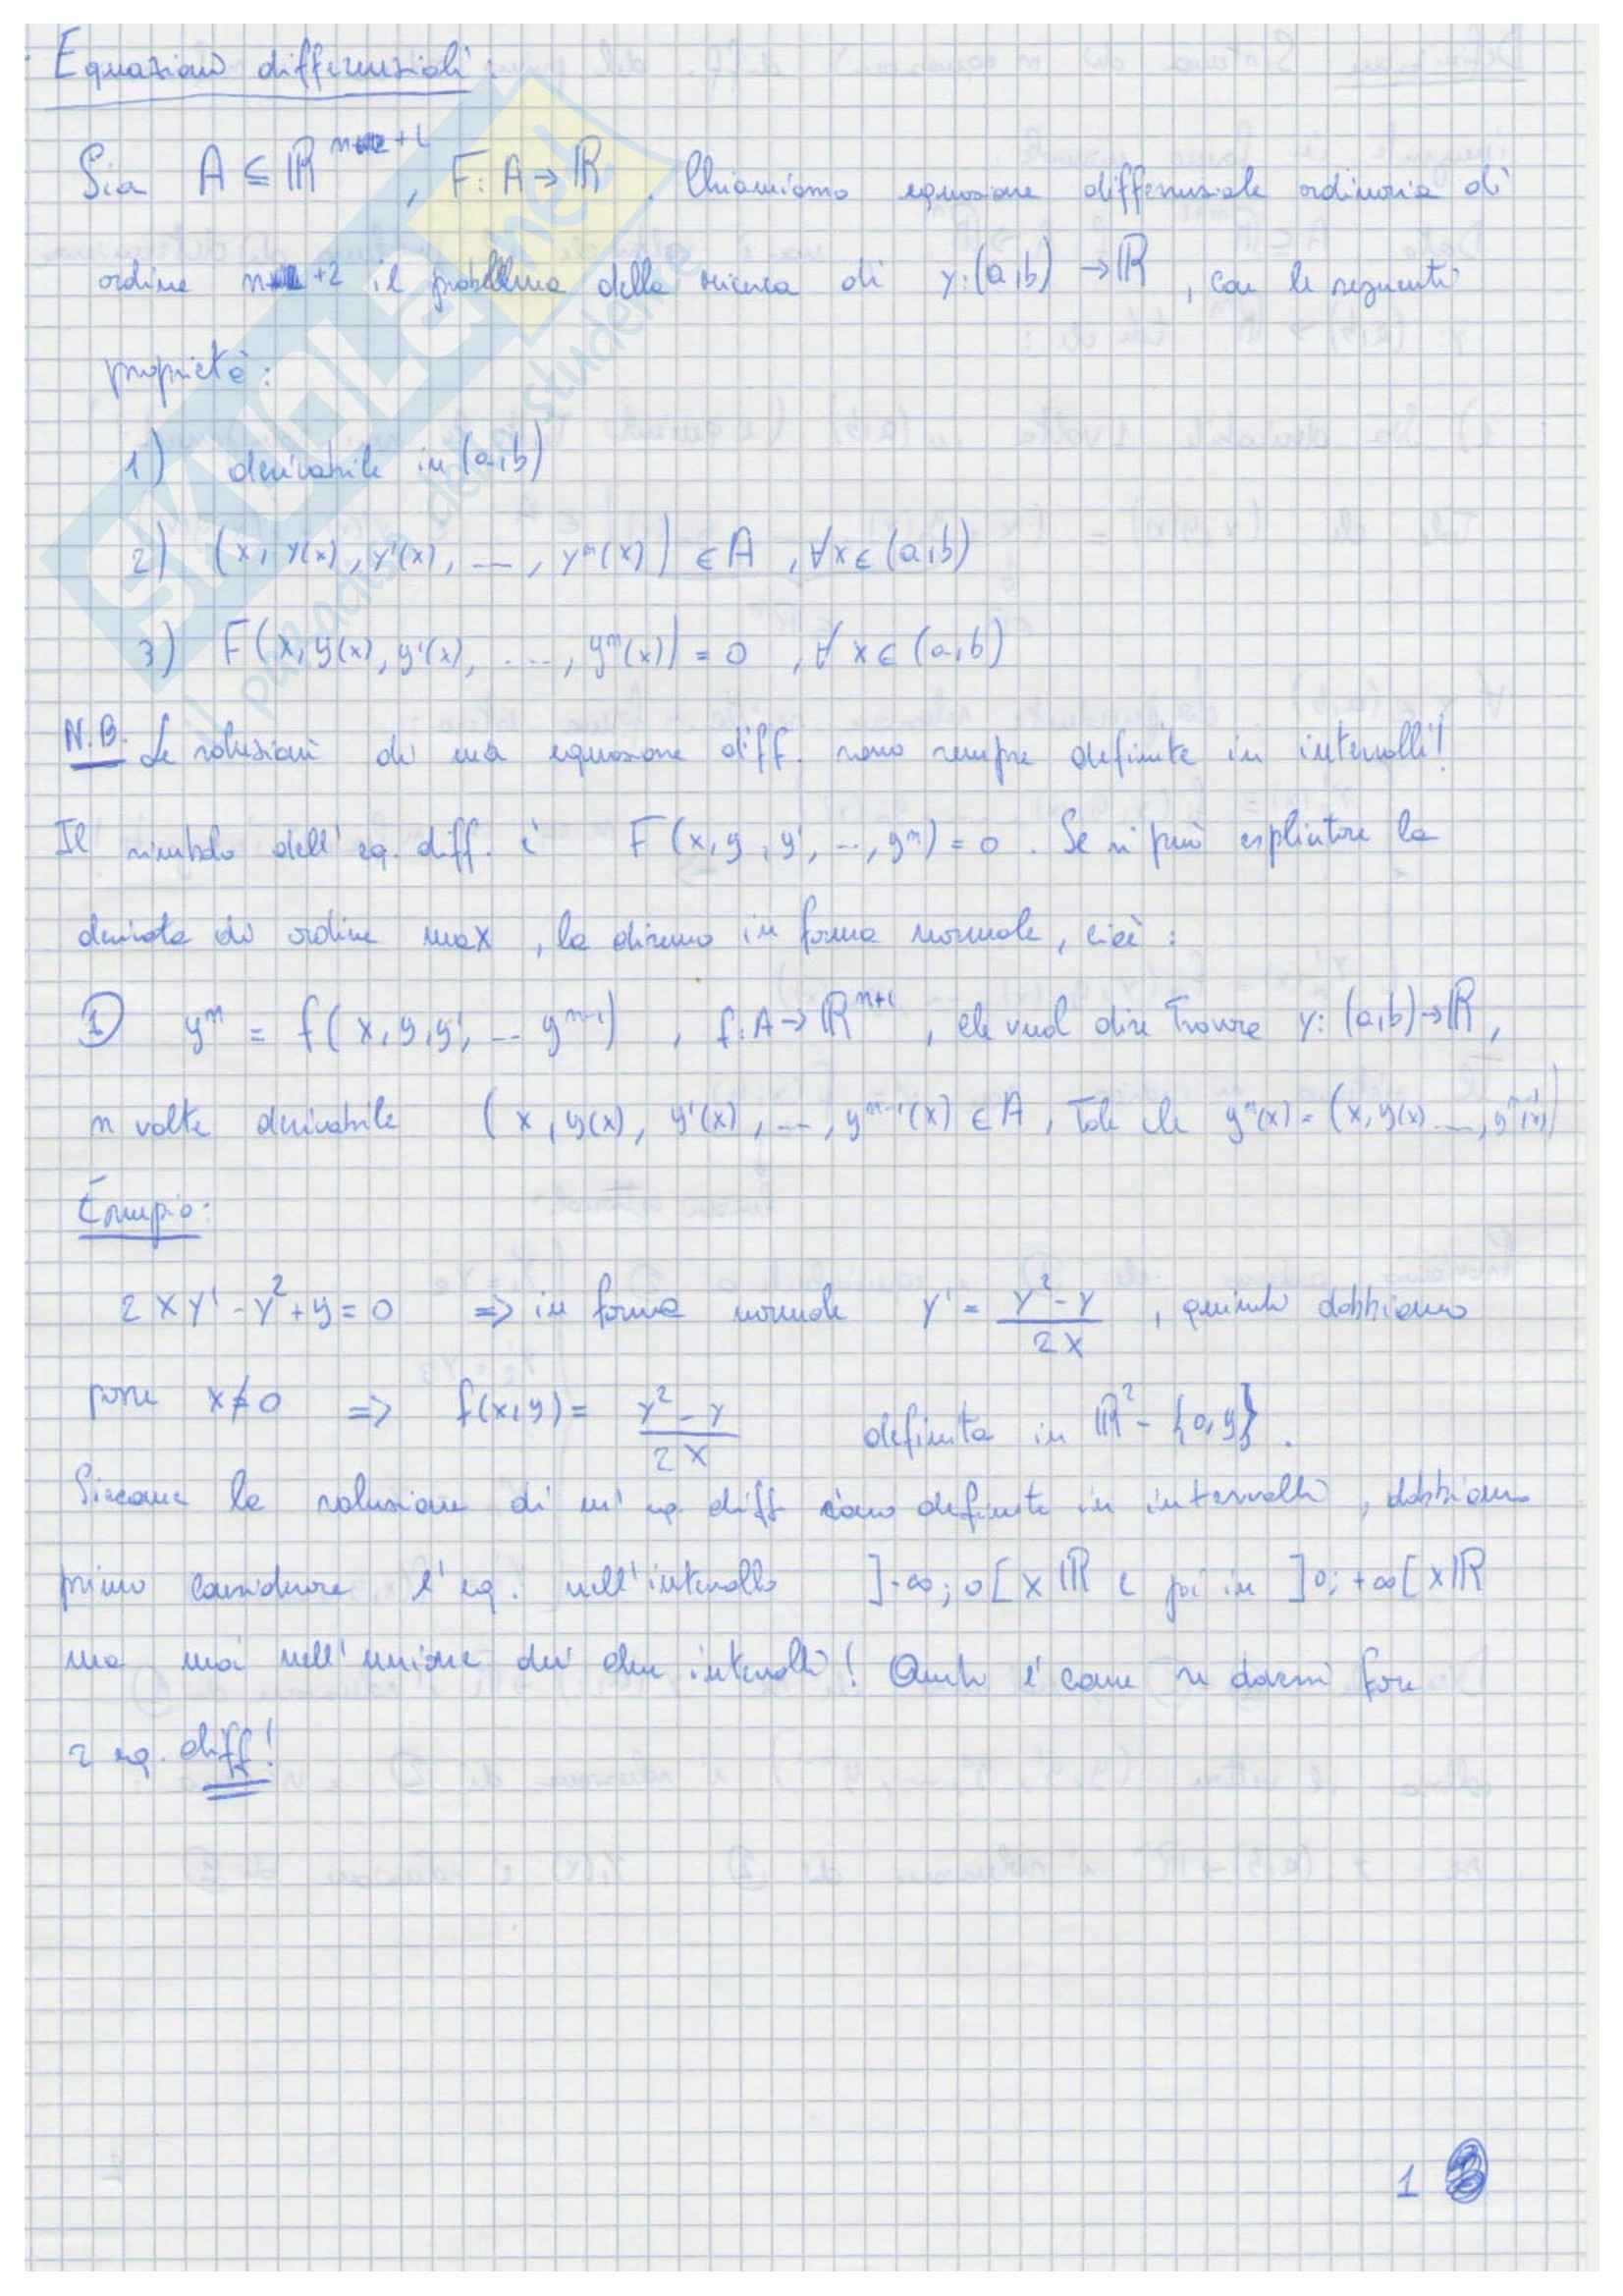 Equazioni differenziali:
Sia A ⊆ ℝ^n+1, F: A → ℝ. Chiamiamo equazione differenziale ordinaria di
ordine n +2 il problema della ricerca di y: (a,b) → ℝ, con le seguenti
proprietà:
1) derivabile in (a,b)
2) (x, y(x), y'(x), ..., yⁿ(x)) ∈ A, ∀x ∈ (a,b)
3) F(x, y(x), y'(x), ..., yⁿ(x)) = 0, ∀x ∈ (a,b)
N.B. Le soluzioni di una equazione diff. sono sempre definite in intervalli!
Il simbolo dell'eq. diff. è F(x, y, y', ..., yⁿ) = 0. Se si può esplicitare la
derivata di ordine max, la diremo in forma normale, cioè:
① yⁿ = f(x, y, y', ... yⁿ⁻¹), f: A → ℝⁿ⁺¹, che vuol dire trovare y: (a,b) → ℝ,
n volte derivabile (x, y(x), y'(x), ..., yⁿ⁻¹(x) ∈ A, tale che yⁿ(x) = (x, y(x) ..., yⁿ⁻¹(x))
Esempio:
2xy' - y² + y = 0 => in forma normale y' = (y² - y)/2x, quindi dobbiamo
porre x ≠ 0 => f(x,y) = (y² - y)/2x definita in ℝ² - {0,y}.
Siccome le soluzione di un' eq. diff sono definite in intervalli, dobbiamo
primo considerare l'eq. nell'intervallo ]-∞; 0[ x ℝ e poi in ]0; +∞[ x ℝ
ma mai nell'unione dei due intervalli! Quindi è come se dovessi fare
2 eq. diff!
1
SKUOLA.net
il paradiso dello studente